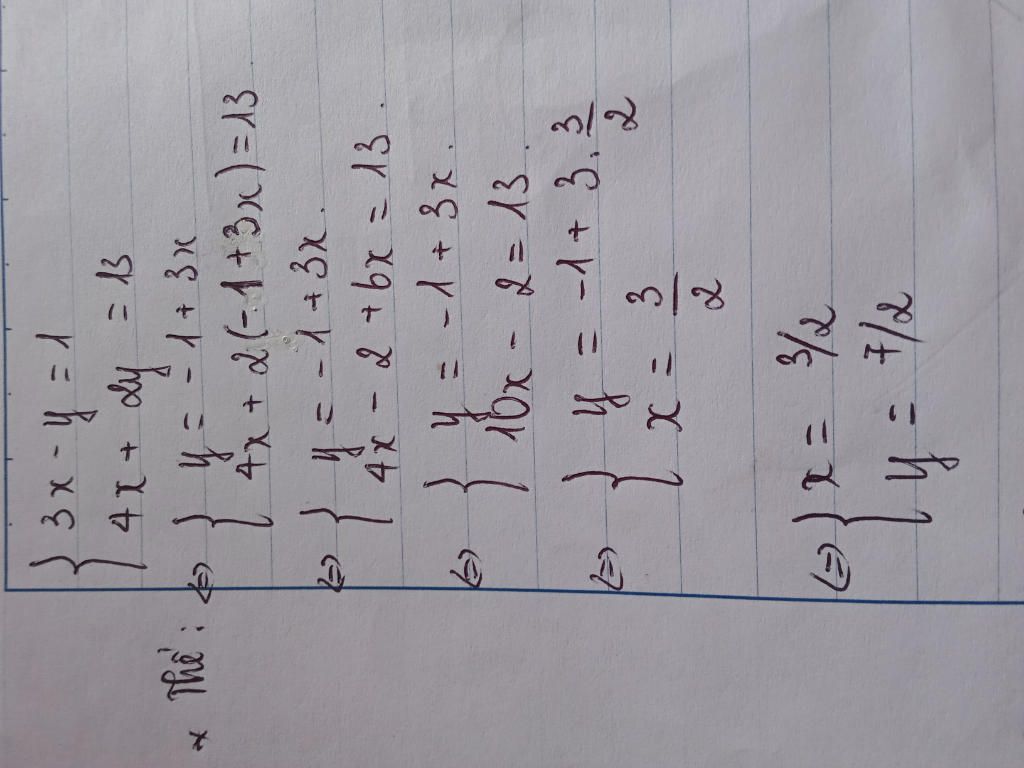 { 3x - y = 1
4x + 2y = 13
* Thế: <=> { y = -1 + 3x
4x + 2(-1 + 3x) = 13
<=> { y = -1 + 3x.
4x - 2 + 6x = 13.
<=> { y = -1 + 3x.
10x - 2 = 13.
<=> { y = -1 + 3. 3/2
x = 3/2
<=> { x = 3/2
y = 7/2